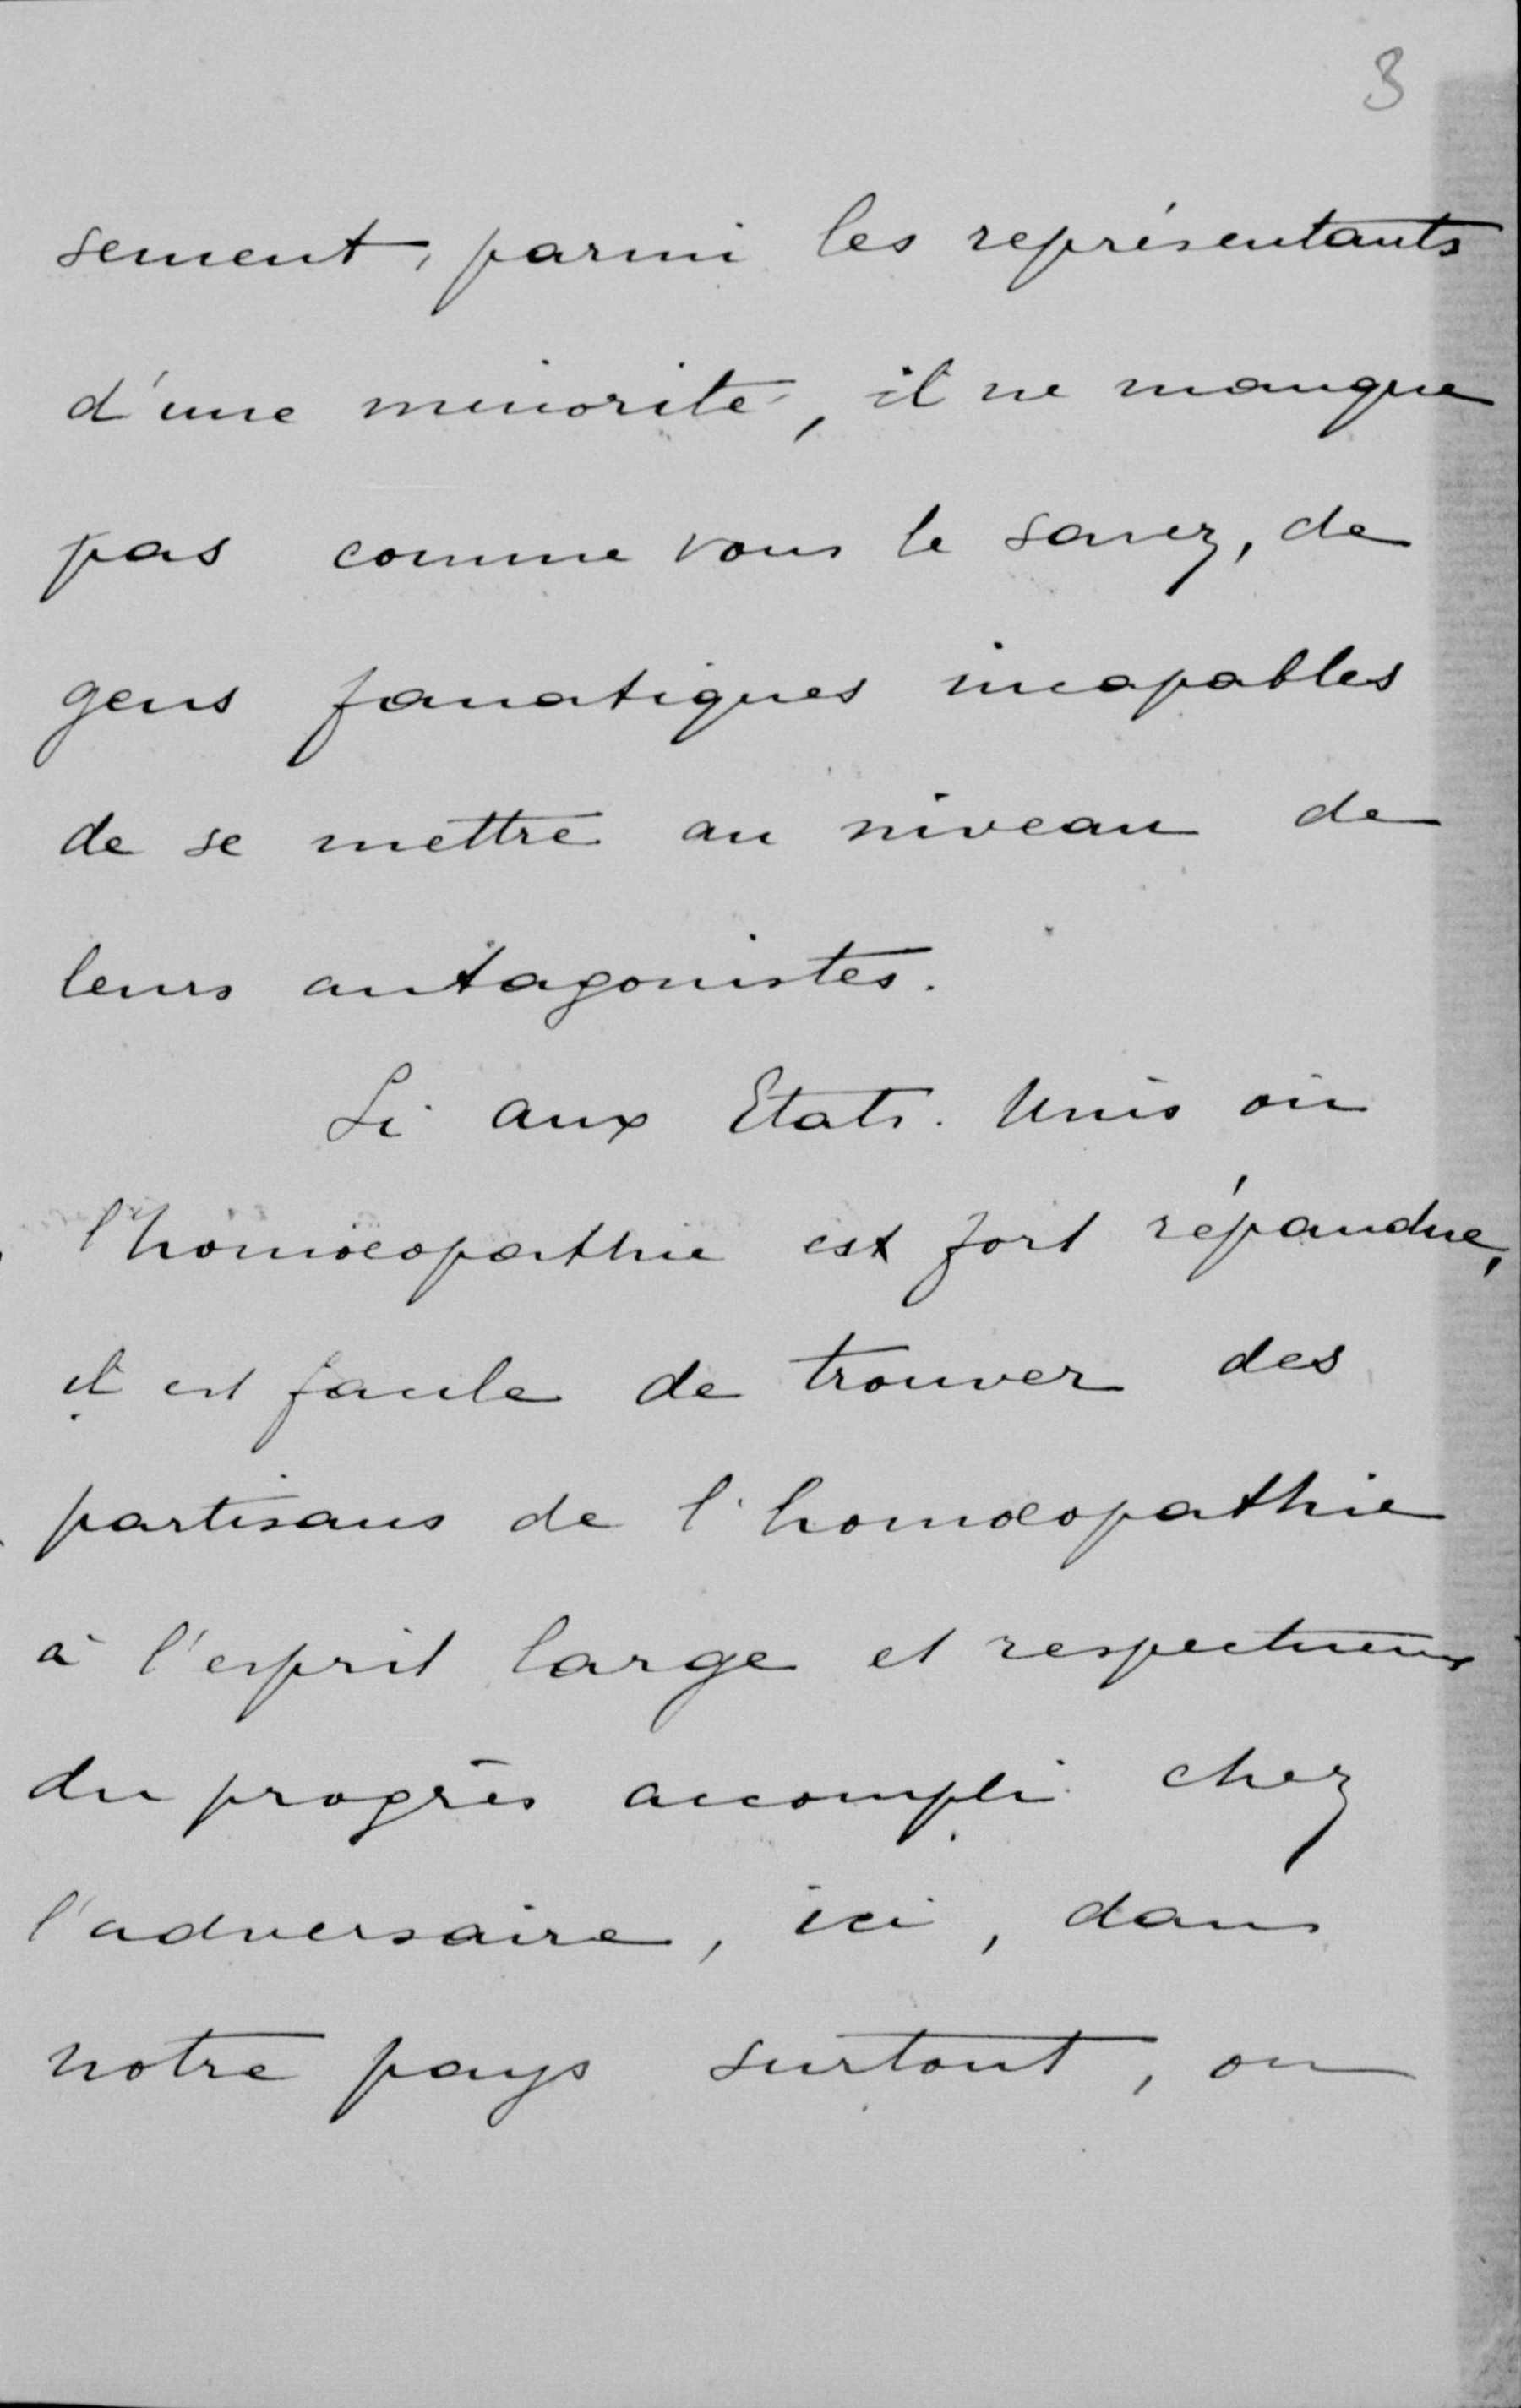 3
sement, parmi les représentants
d'une minorité, il ne manque
pas comme vous le savez, de
gens fanatiques incapables
de se mettre au niveau de
leurs antagonistes.
Si aux Etats. Unis où
l'homoeopathie est fort répandue,
il est facile de trouver des
partisans de l'homoeopathie
à l'esprit large et respectueux
du progrès accompli chez
l'adversaire, ici, dans
notre pays surtout, on